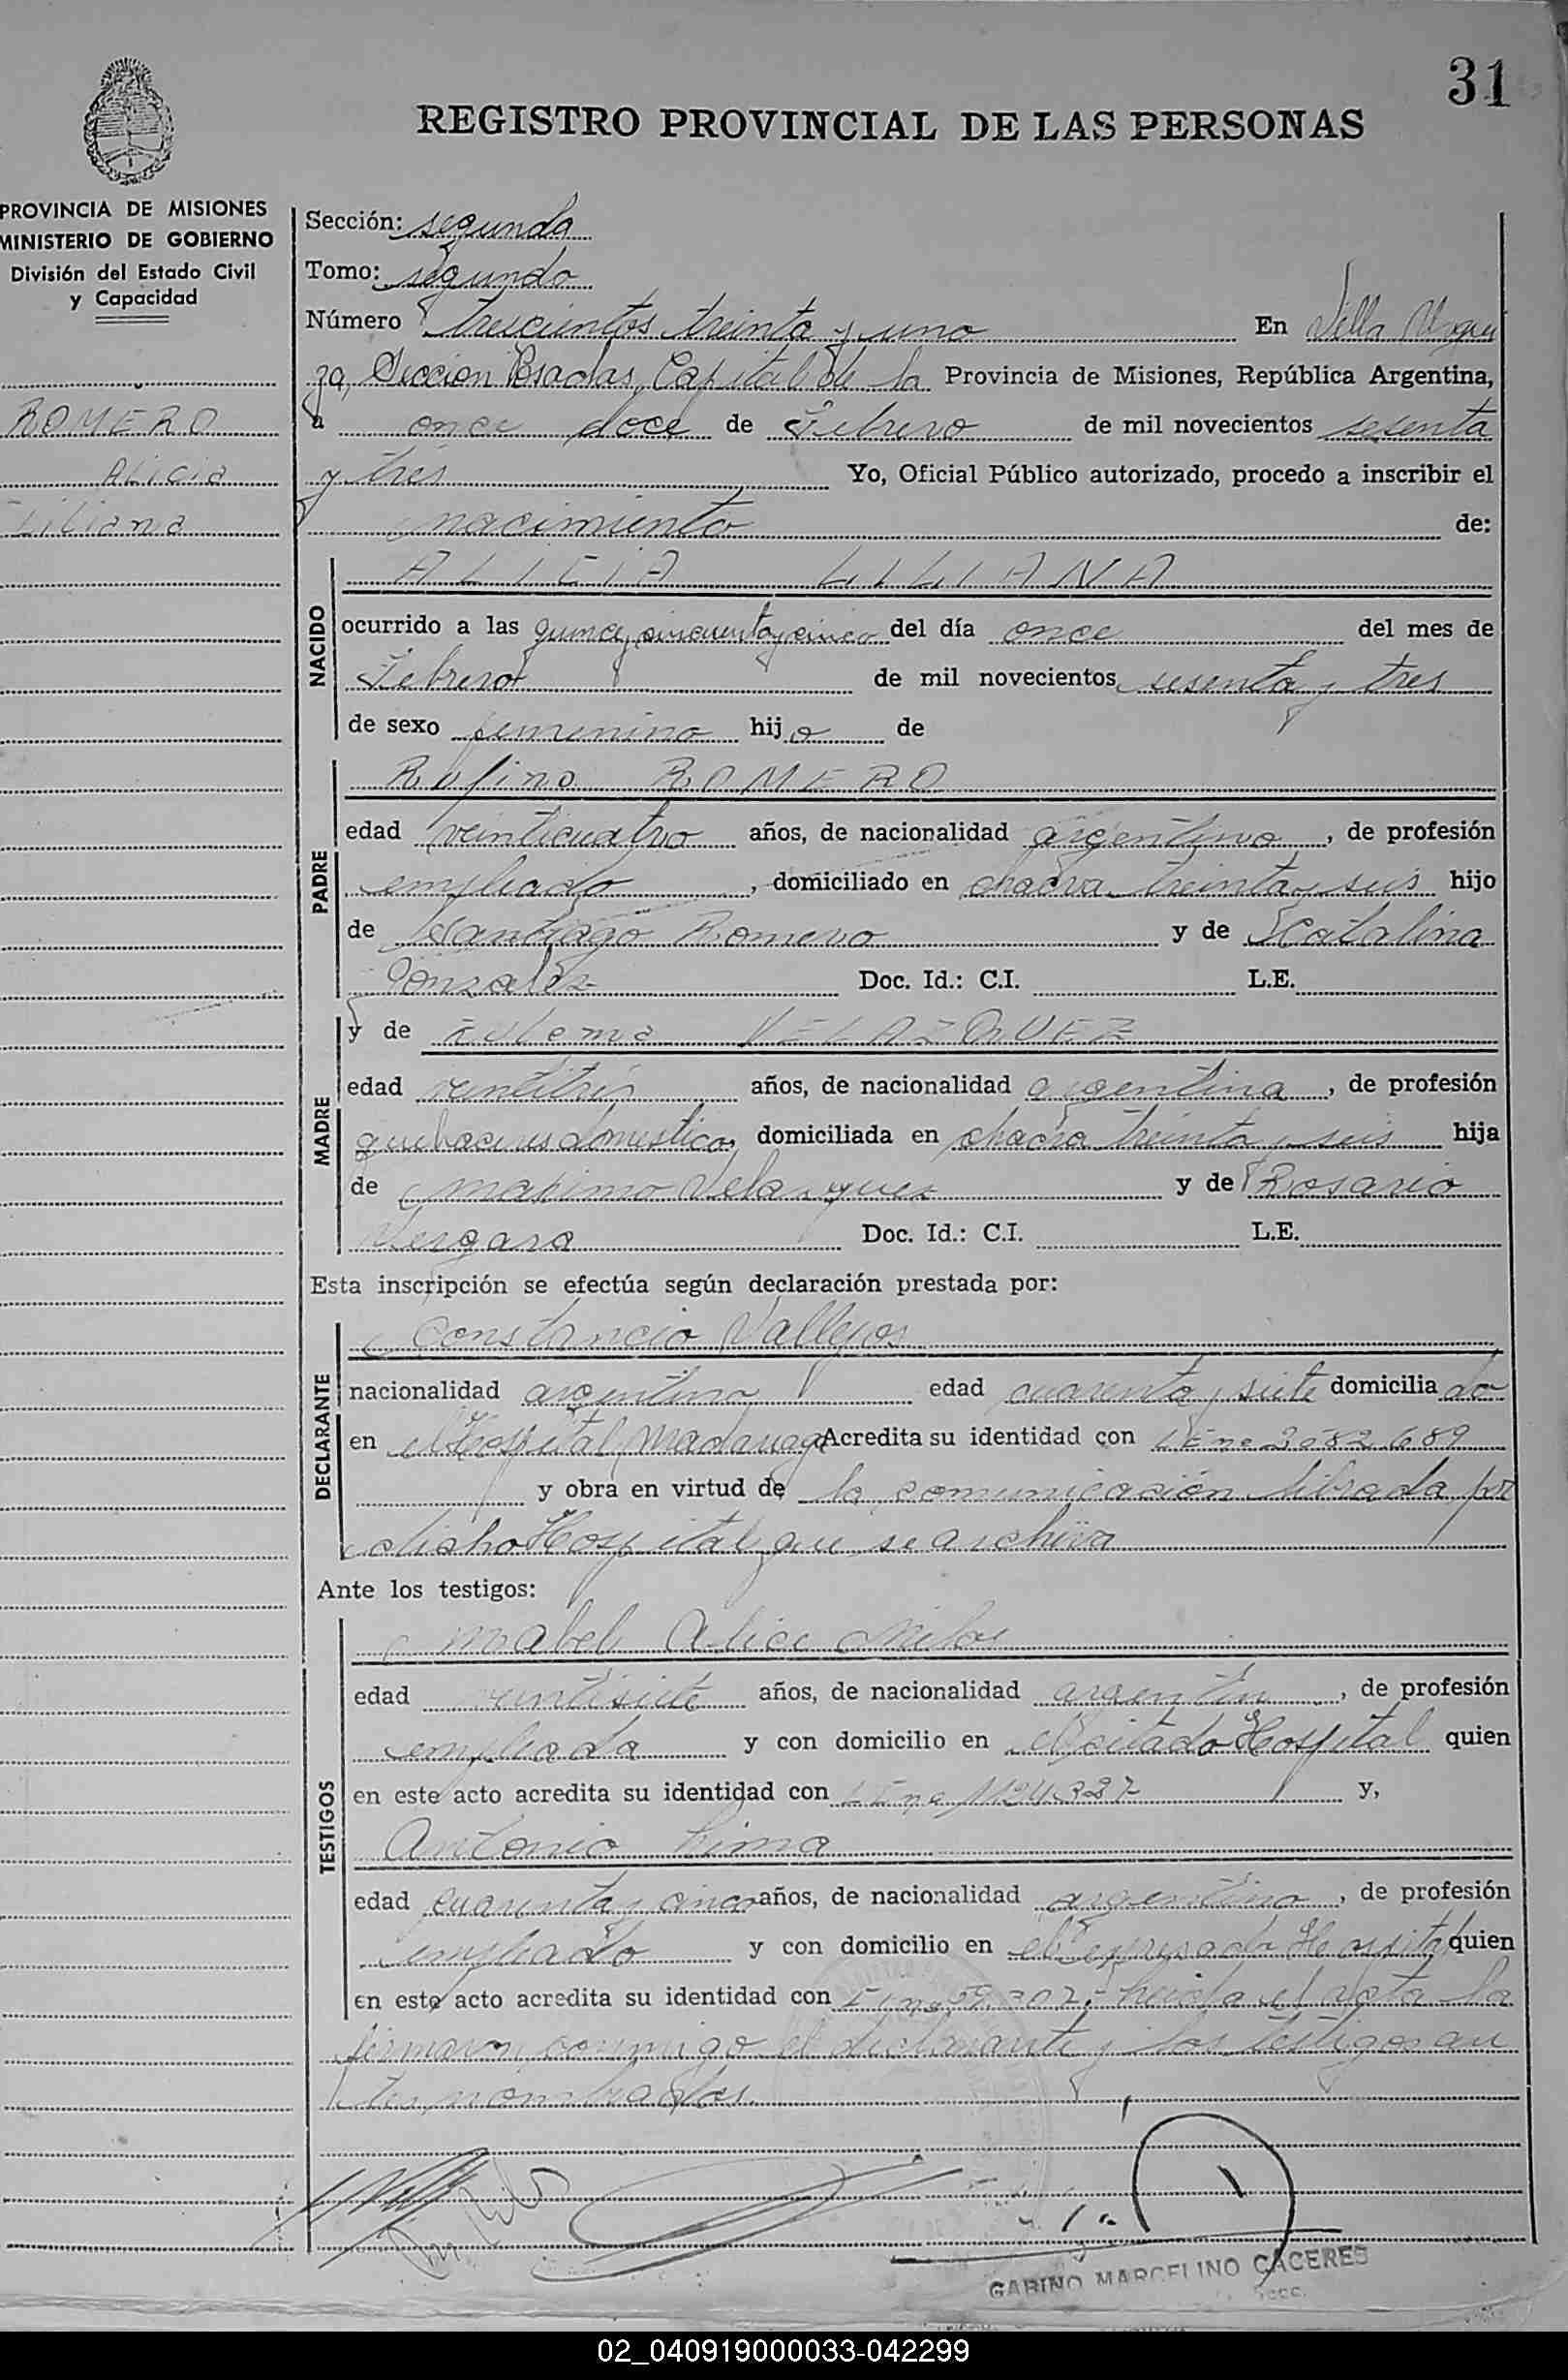 31
REGISTRO PROVINCIAL DE LAS PERSONAS
PROVINCIA DE MISIONES
MINISTERIO DE GOBIERNO
División del Estado Civil
y Capacidad
ROMERO
Alicia
Liliana
Sección: segunda
Tomo: segundo
Número trescientos treinta y uno En Villa Urqui
za, Sección Posadas, Capital de la Provincia de Misiones, República Argentina,
a once doce de Febrero de mil novecientos sesenta
y tres Yo, Oficial Público autorizado, procedo a inscribir el
nacimiento de:
NACIDO
ALICIA LILIANA
ocurrido a las quince y cincuenta y cinco del día once del mes de
Febrero de mil novecientos sesenta y tres
de sexo femenino hija de
PADRE
Rufino ROMERO
edad veinticuatro años, de nacionalidad argentino, de profesión
empleado, domiciliado en chacra treinta y seis hijo
de Santiago Romero y de Catalina
Gonzalez Doc. Id.: C.I. L.E.
MADRE
y de Zulema VELAZQUEZ
edad ventitres años, de nacionalidad argentina, de profesión
quehaceres domesticos domiciliada en chacra treinta y seis hija
de maximo Velazquez y de Rosario
Vergara Doc. Id.: C.I. L.E.
Esta inscripción se efectúa según declaración prestada por:
DECLARANTE
Constancio Vallejos
nacionalidad argentino edad cuarenta y siete domiciliado
en el Hospital Madariaga Acredita su identidad con L E no 3082689
y obra en virtud de la comunicación librada por
dicho Hospital que se archiva
Ante los testigos:
TESTIGOS
mabel Alice
edad ventisiete años, de nacionalidad argentin, de profesión
empleada y con domicilio en el citado Hospital quien
en este acto acredita su identidad con y,
Antonio Lima
edad cuarenta y cinco años, de nacionalidad argentino, de profesión
empleado y con domicilio en el expresado Hospital quien
en este acto acredita su identidad con leida el acta la
firmaron conmigo el declarante y los testigos an
tes nombrados.
GABINO MARCELINO CACERES
02_040919000033-042299